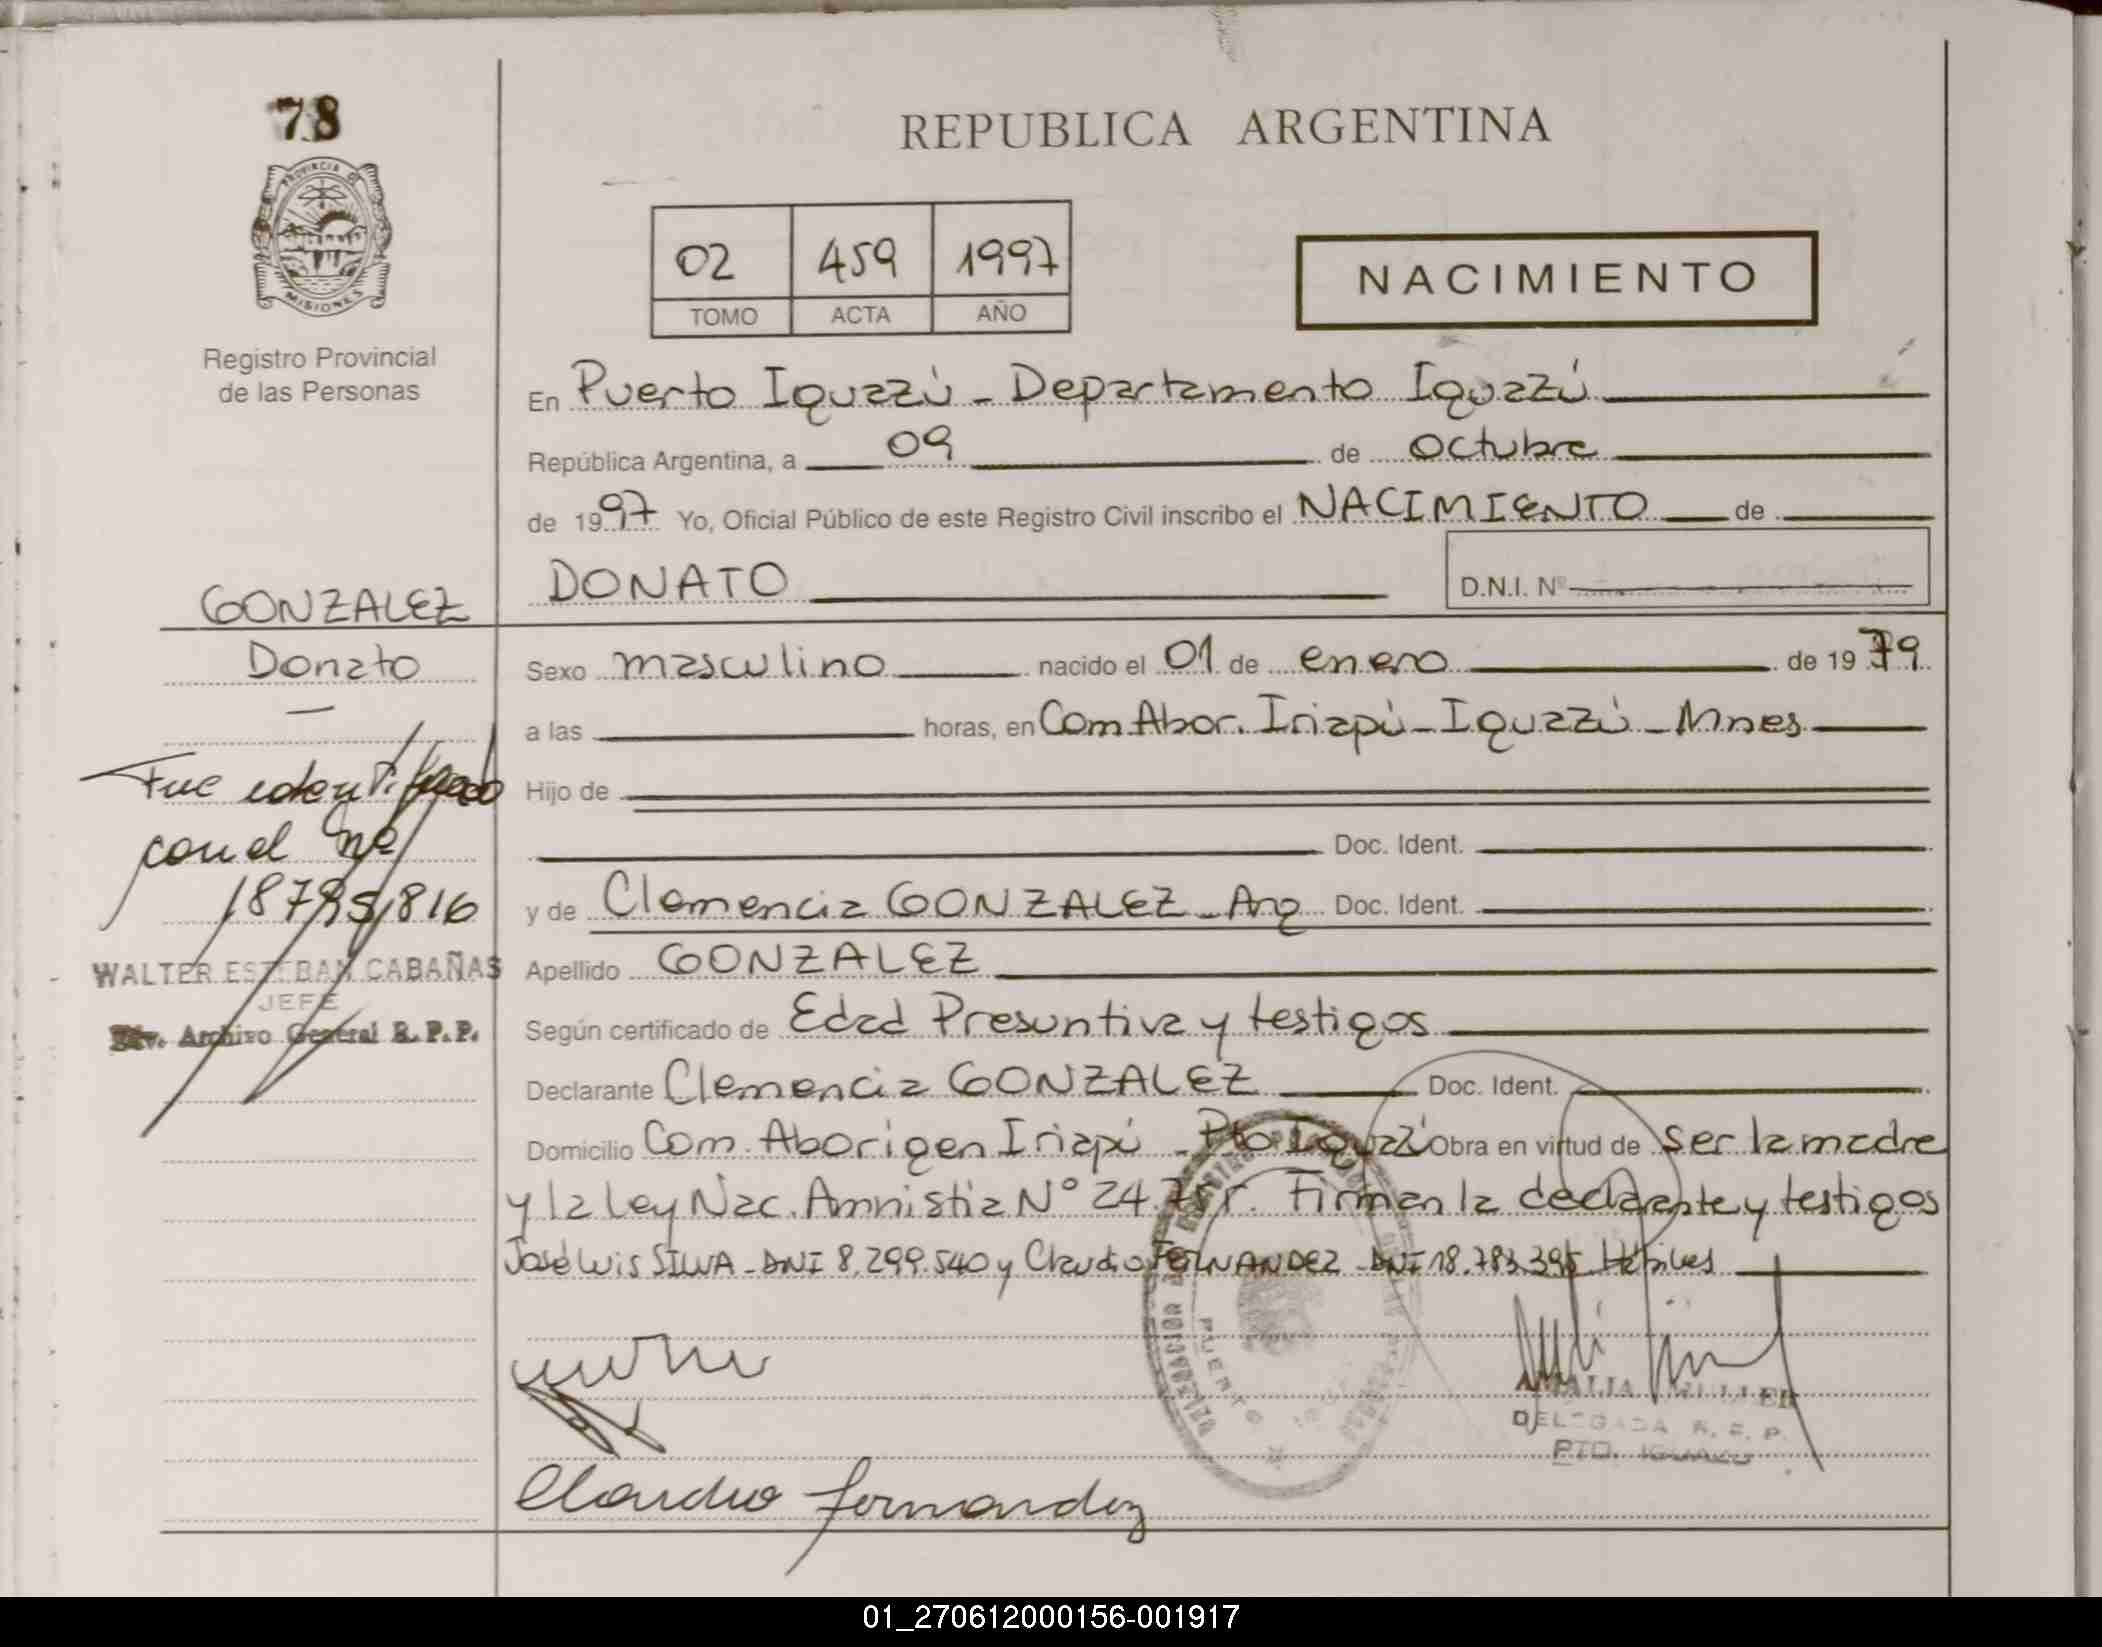 78
PROVINCIA DE
MISIONES
Registro Provincial
de las Personas
REPUBLICA ARGENTINA
02 459 1997
TOMO ACTA AÑO
NACIMIENTO
En Puerto Iguazú - Departamento Iguazú
República Argentina, a 09 de octubre
de 1997 Yo, Oficial Público de este Registro Civil inscribo el NACIMIENTO de
DONATO D.N.I. Nº
GONZALEZ
Donato
Fue identificado
con el Nº
18795,816
WALTER ESTEBAN CABAÑAS
JEFE
Div. Archivo General R.P.P.
Sexo masculino nacido el 01 de enero de 1979
a las horas, en Com Abor. Iriapú - Iguazú - Mnes
Hijo de
Doc. Ident.
y de Clemencia GONZALEZ - Arg Doc. Ident.
Apellido GONZALEZ
Según certificado de Edad Presuntiva y testigos
Declarante Clemencia GONZALEZ Doc. Ident.
Domicilio Com. Aborigen Iriapú - Pto Iguazú Obra en virtud de ser la madre
y la Ley Nac. Amnistia N° 24. Firman la declarante y testigos
José Luis SILVA - DNI 8.299.540 y Claudio FERNANDEZ - DNI 18.783.395 Hábiles
PUERTO
AMALIA
DELEGADA R.P.P.
PTO. IGUAZU
Claudio fernandez
01_270612000156-001917